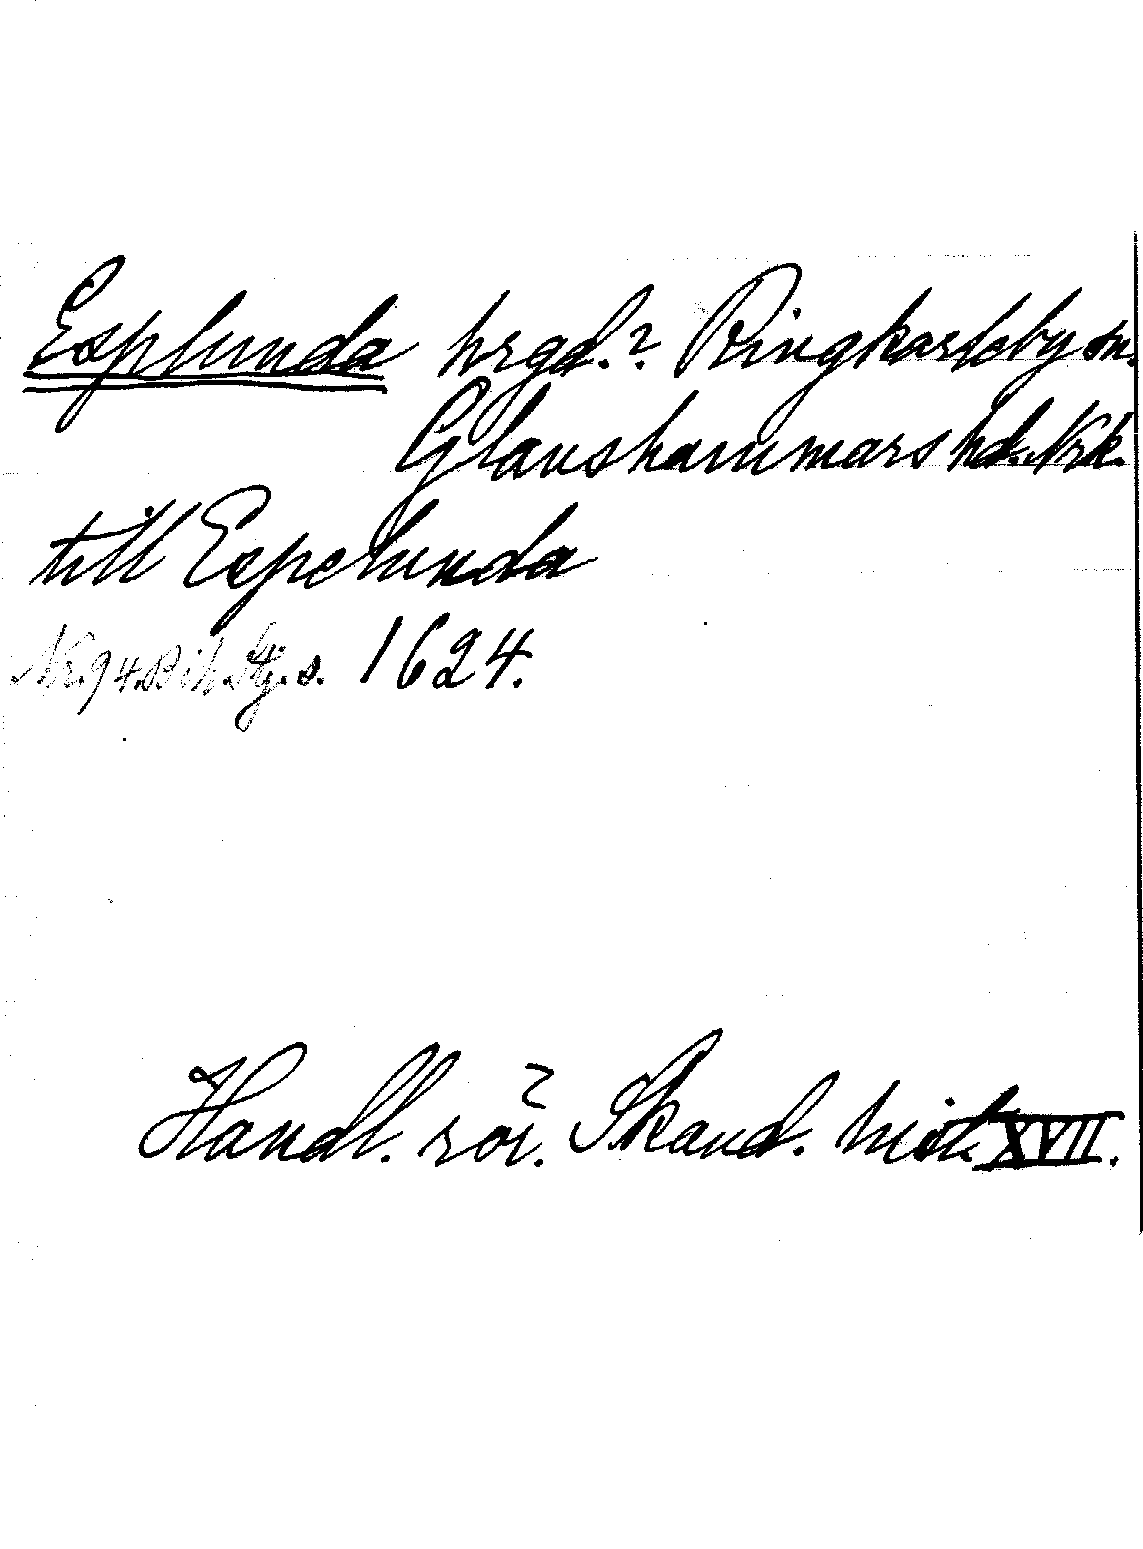 Esplunda hrgd.? Ringkarleby sn.
Glanshammars hd. Nrk.
till Espelunda
1624.
Handl. rör. Skand. hist. XVII.